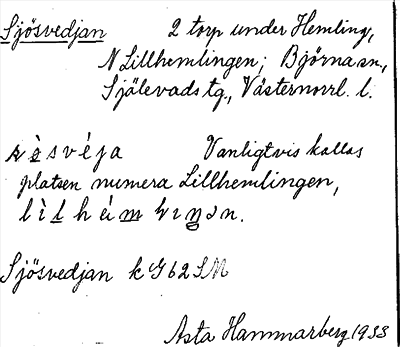 Sjösvedjan 2 torp under Hemling,
N Lillhemlingen; Björna sn.,
Själevads tg., Västernorrl. l.
Vanligtvis kallas
platsen numera Lillhemlingen,
Sjösvedjan k G 62 SM
Asta Hammarberg 1933